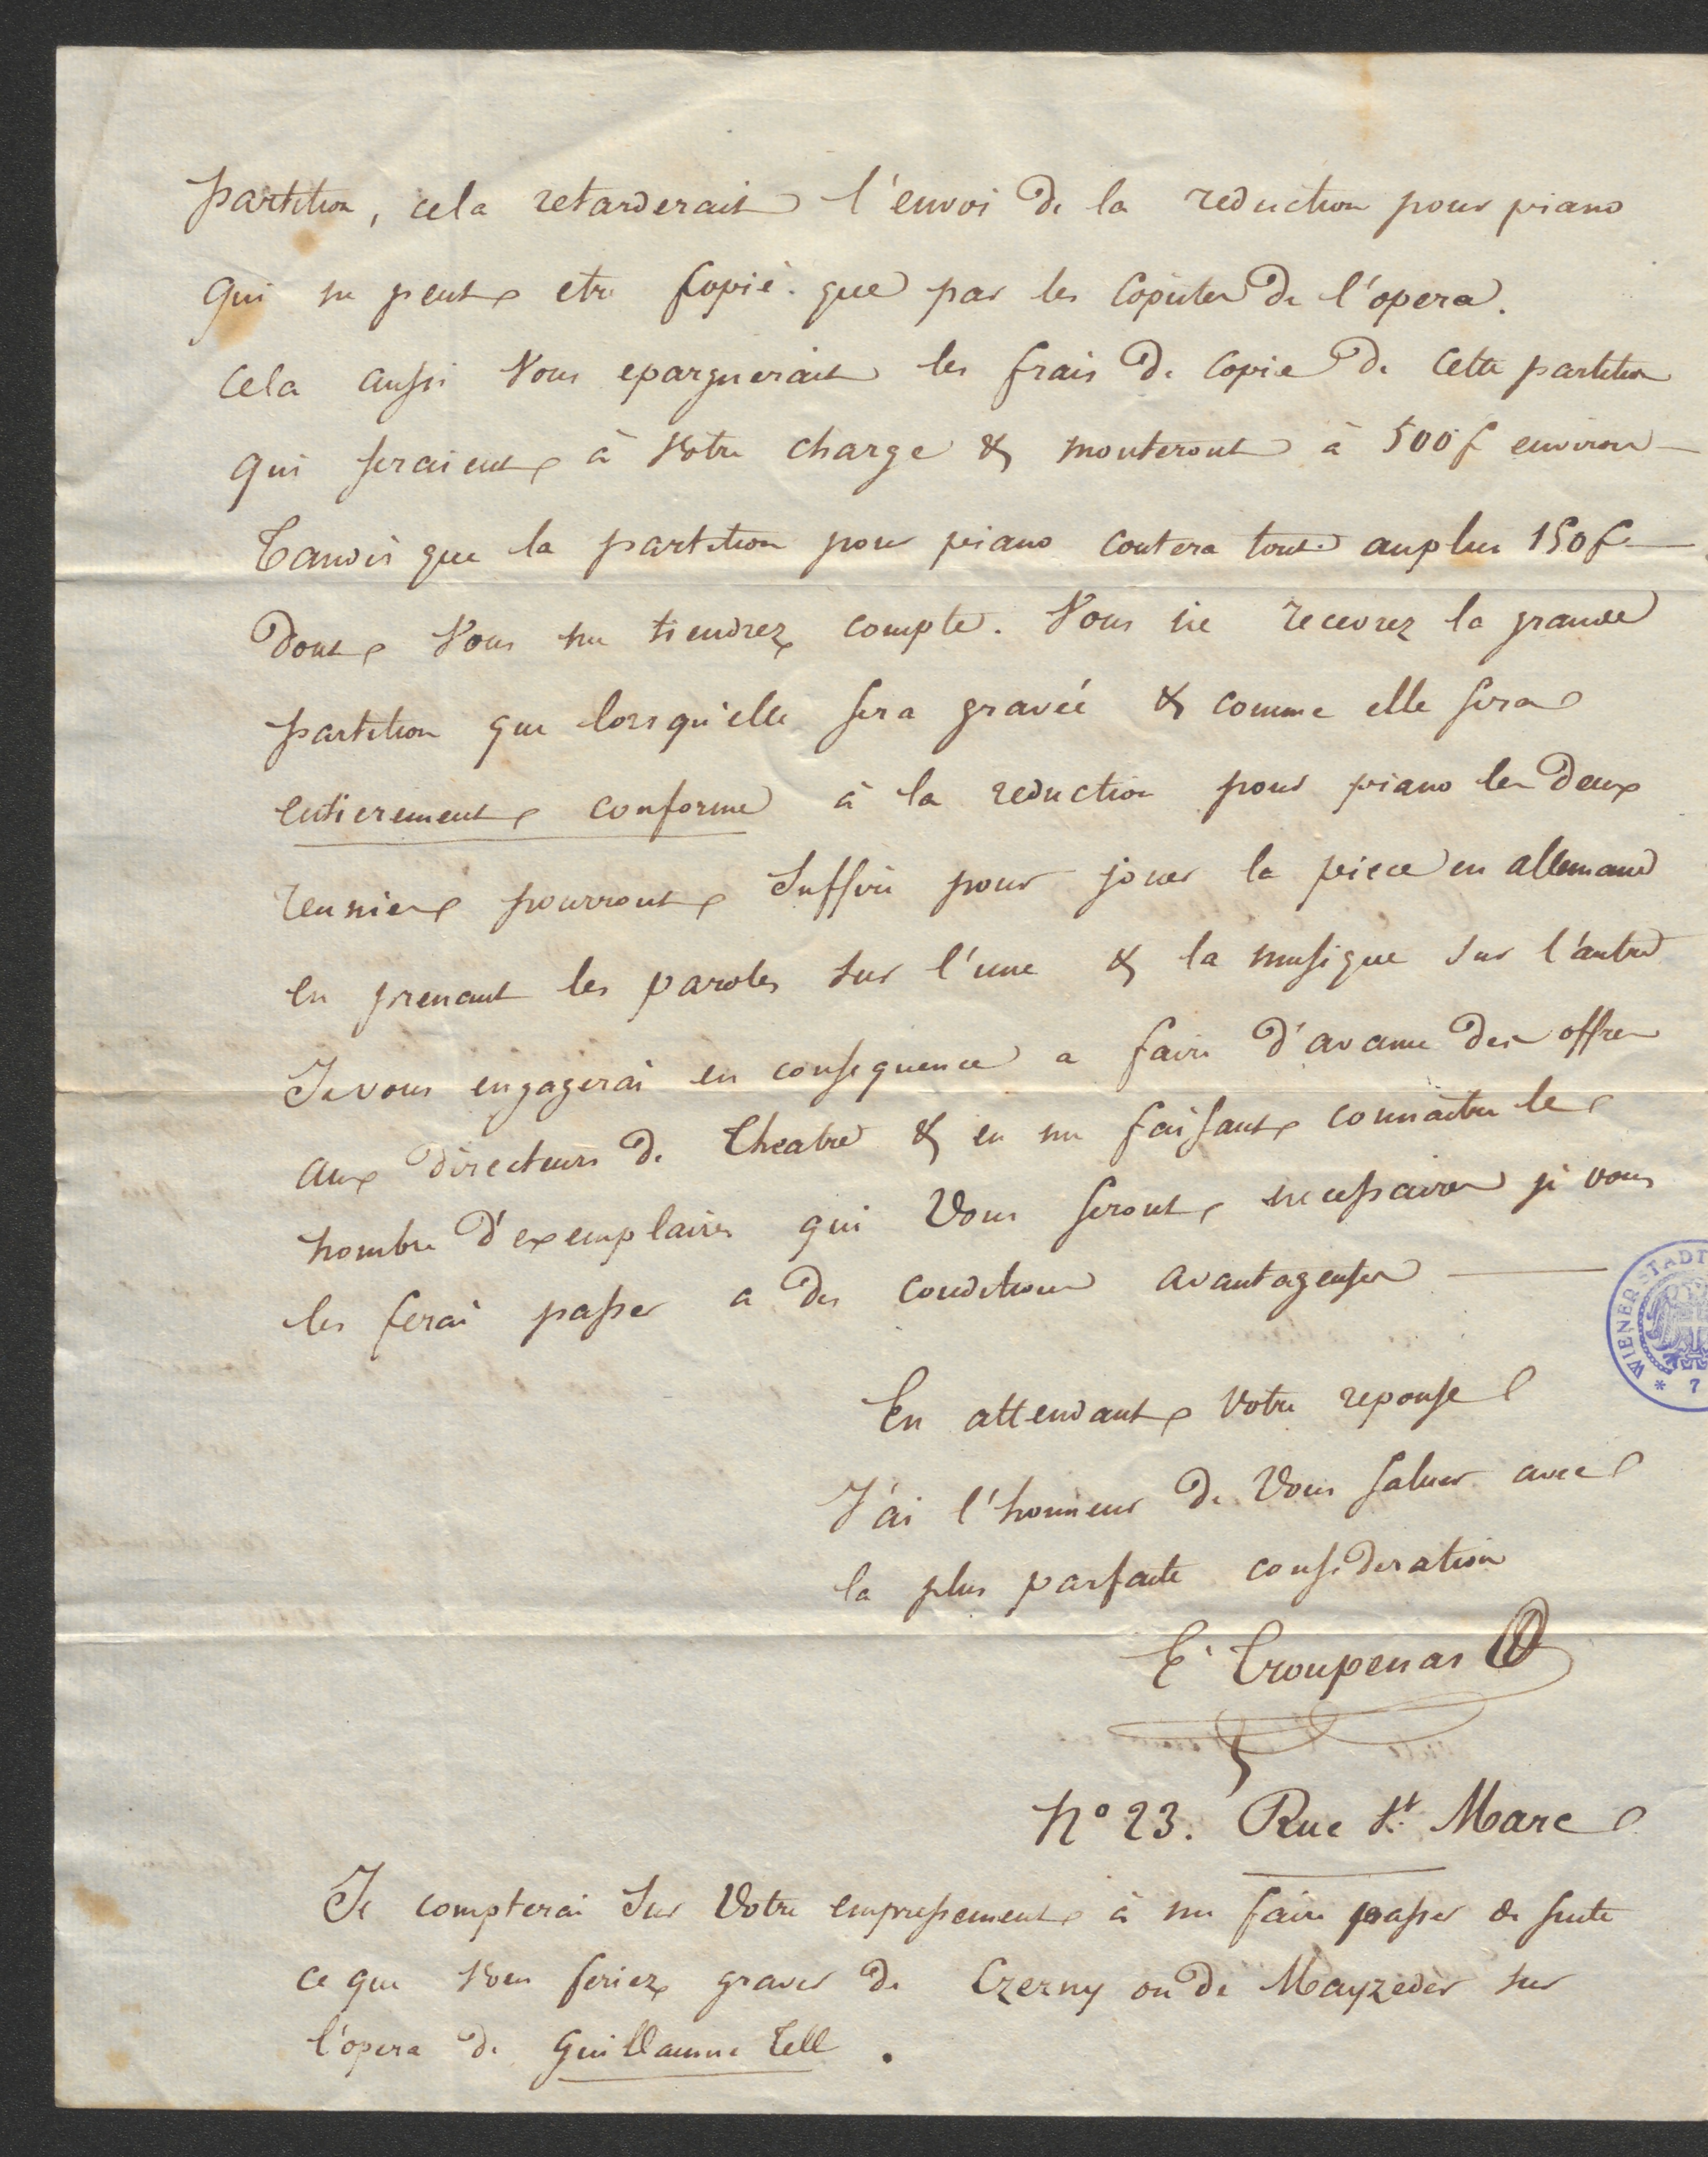 partition, cela retarderait l'envoi de la reduction pour piano
qui ne peut etre copié que par les copistes de l'opera.
cela aussi vous epargnerait les frais de copie de cette partition
qui seraient à votre charge & monteront à 500f environ —
Tandis que la partition pour piano coutera tout au plus 150f —
dont vous me tiendrez compte. Vous ne recevrez la grande
partition que lorsqu'elle sera gravée & comme elle sera
entierement conforme à la reduction pour piano les deux
reunies pourront suffire pour jouer la piece en allemand
en prenant les paroles sur l'une & la musique sur l'autre
Je vous engagerai en consequence a faire d'avance des offres
aux directeurs de theatre & en me faisant connaitre le
nombre d'exemplaires qui vous seront necessaires je vous
les ferai passer a des conditions avantageuses —
En attendant votre reponse
J'ai l'honneur de vous saluer avec
la plus parfaite consideration
E. Troupenas
N° 23. Rue St. Marc
Je compterai sur votre empressement à me faire passer de suite
ce que vous feriez graver de Czerny ou de Mayzeder sur
l'opera de Guillaume Tell.
WIENER STADT
* 7